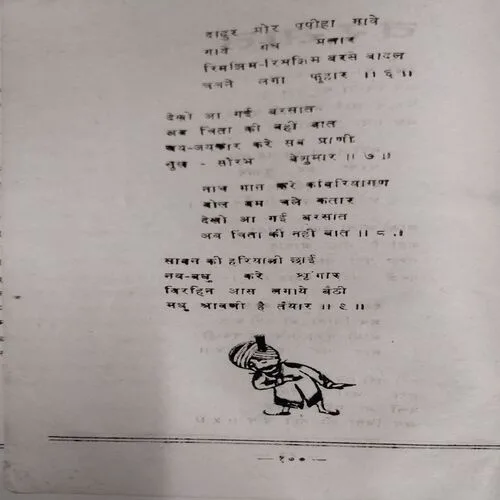 दादुर मोर पपीहा गावे
गावे मेघ मलार
रिमझिम-रिमझिम बरसे बादल
चलने लगा फुहार ।। ६ ।।
देखो आ गई बरसात
अब चिंता की नहीं बात
जय-जयकार करे सब प्राणी
सुख - सौरभ बेशुमार ।। ७ ।।
नाच गान करे कांवरियागण
बोल बम चले कतार
देखो आ गई बरसात
अब चिंता की नहीं बात ।। ८ ।।
सावन की हरियाली छाई
नव-बधु करे श्रृंगार
विरहिन आस लगाये बैठी
मधु श्रावणी है तैयार ।। ९ ।।
— १७० —